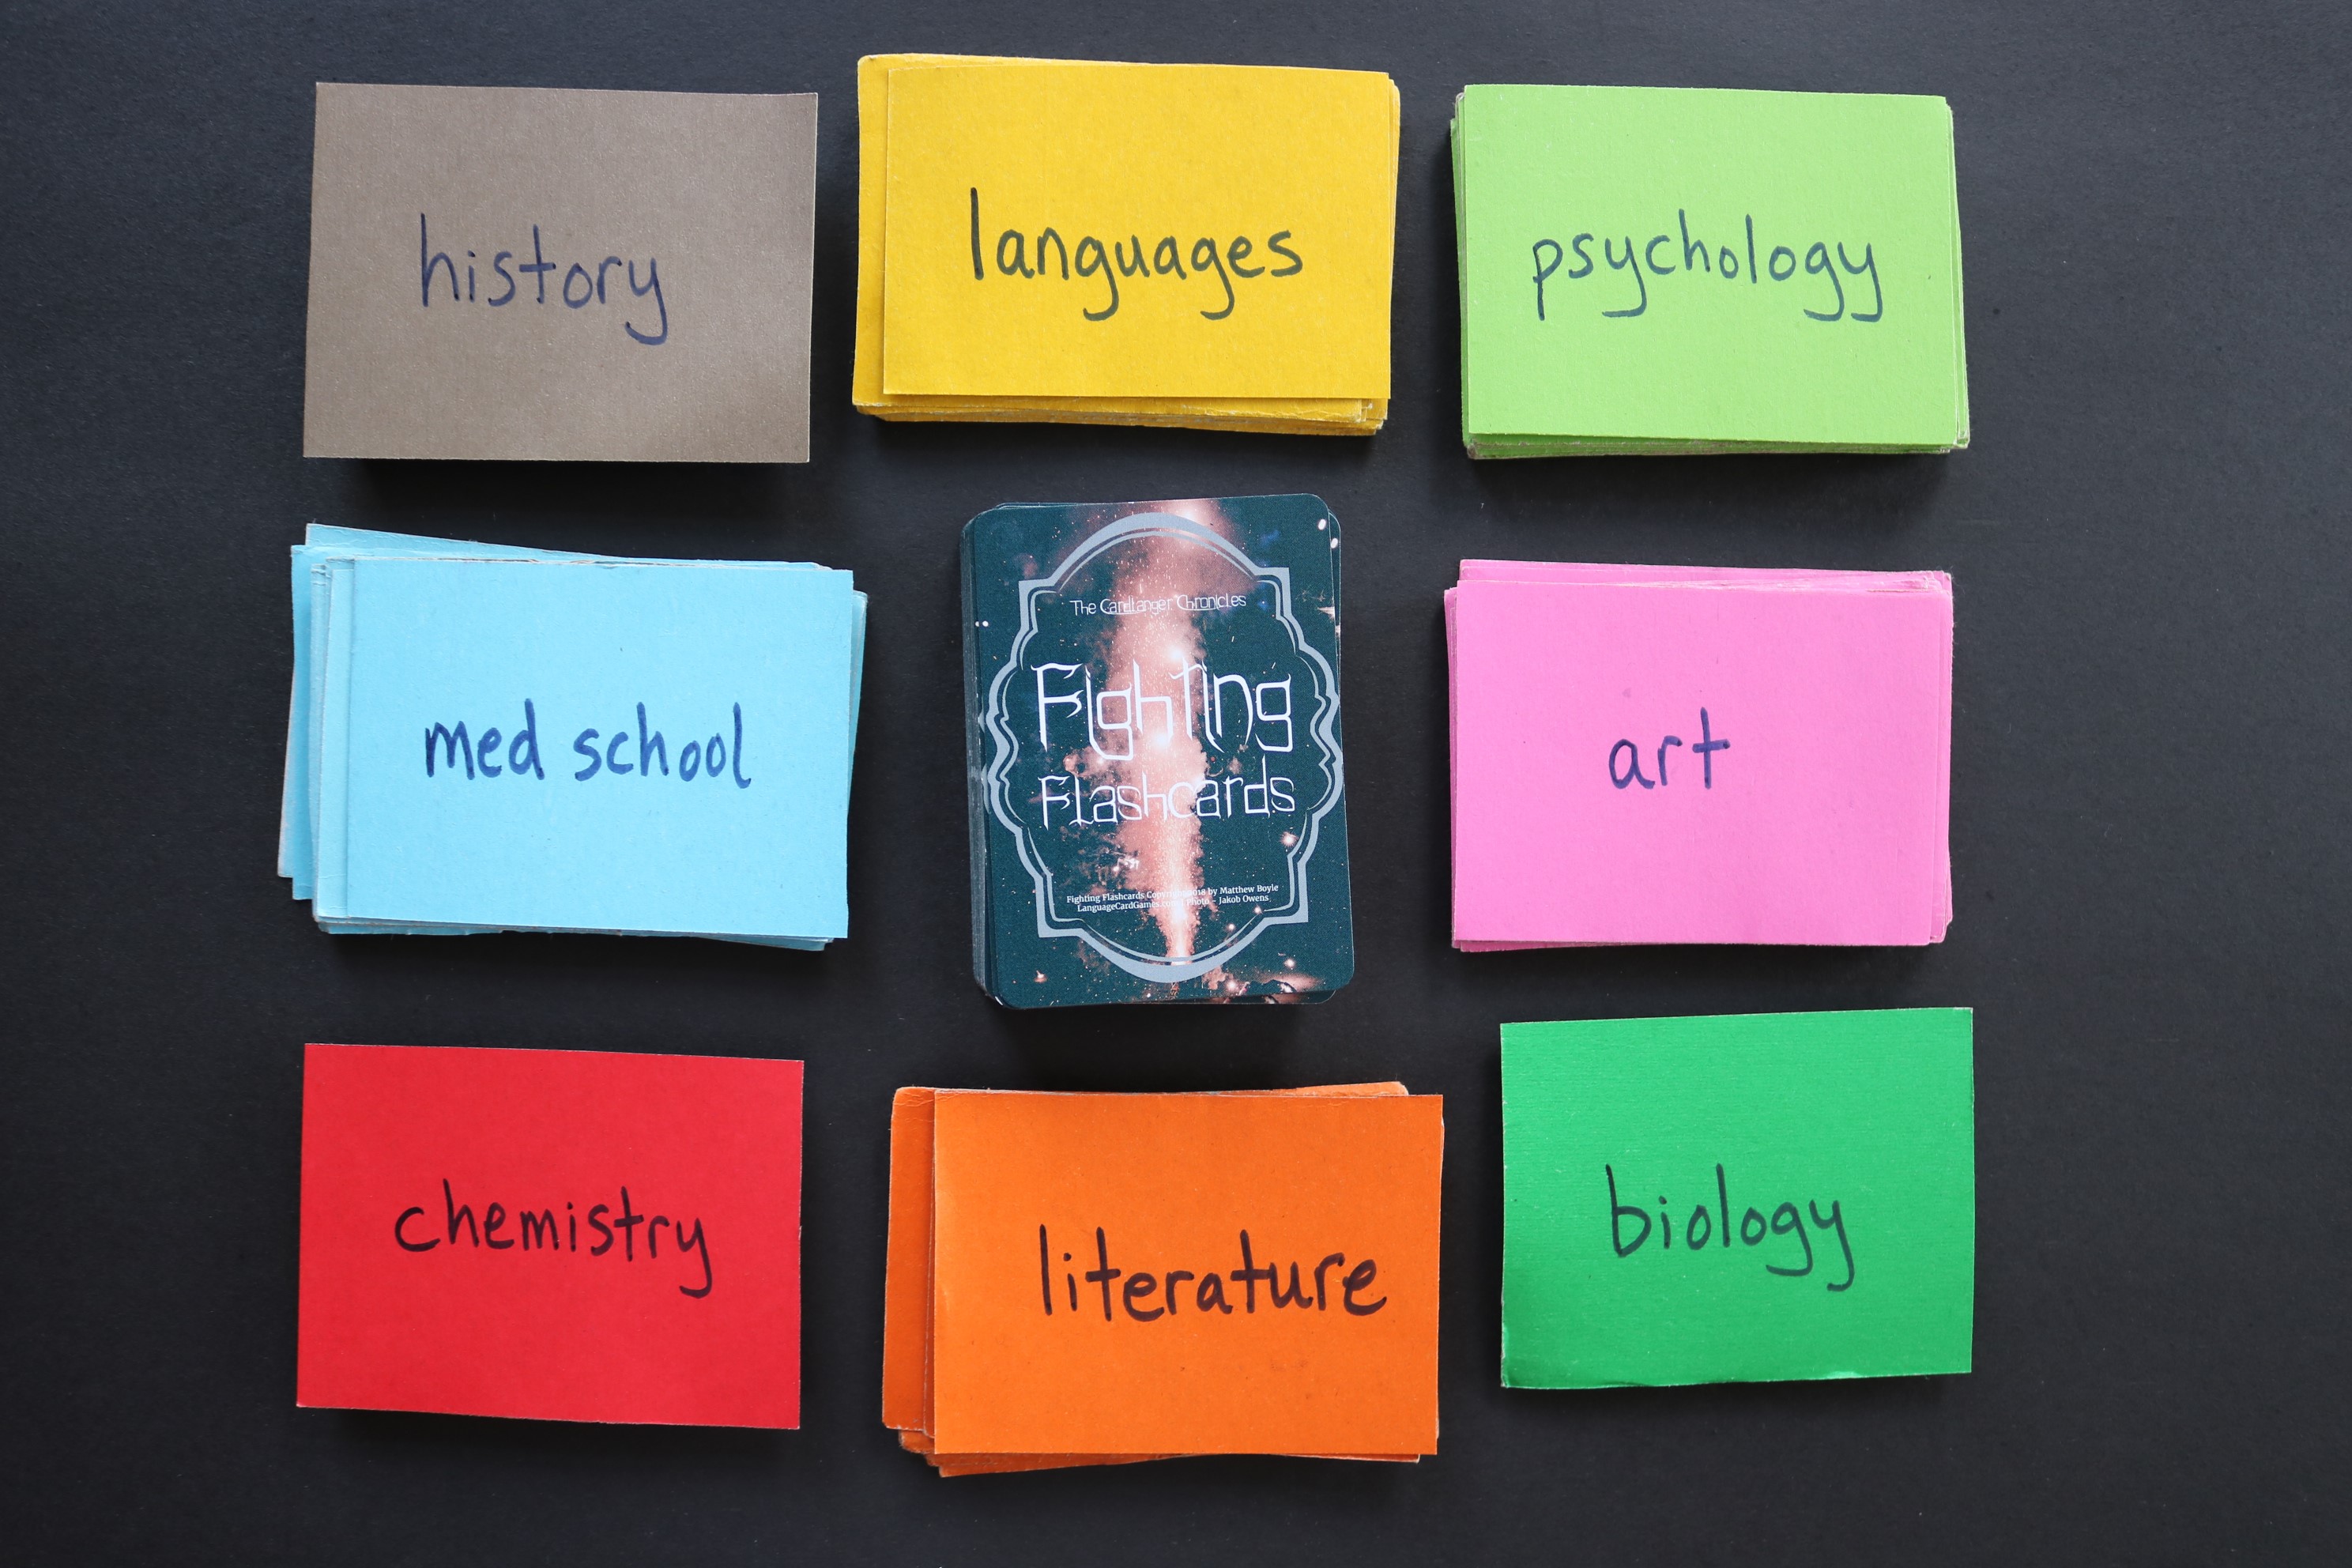 history
languages
psychology
med school
The Cardlanger Chronicles
Fighting
Flashcards
Fighting Flashcards Copyright 2018 by Matthew Boyle
LanguageCardGames Photo - Jakob Owens
art
chemistry
literature
biology